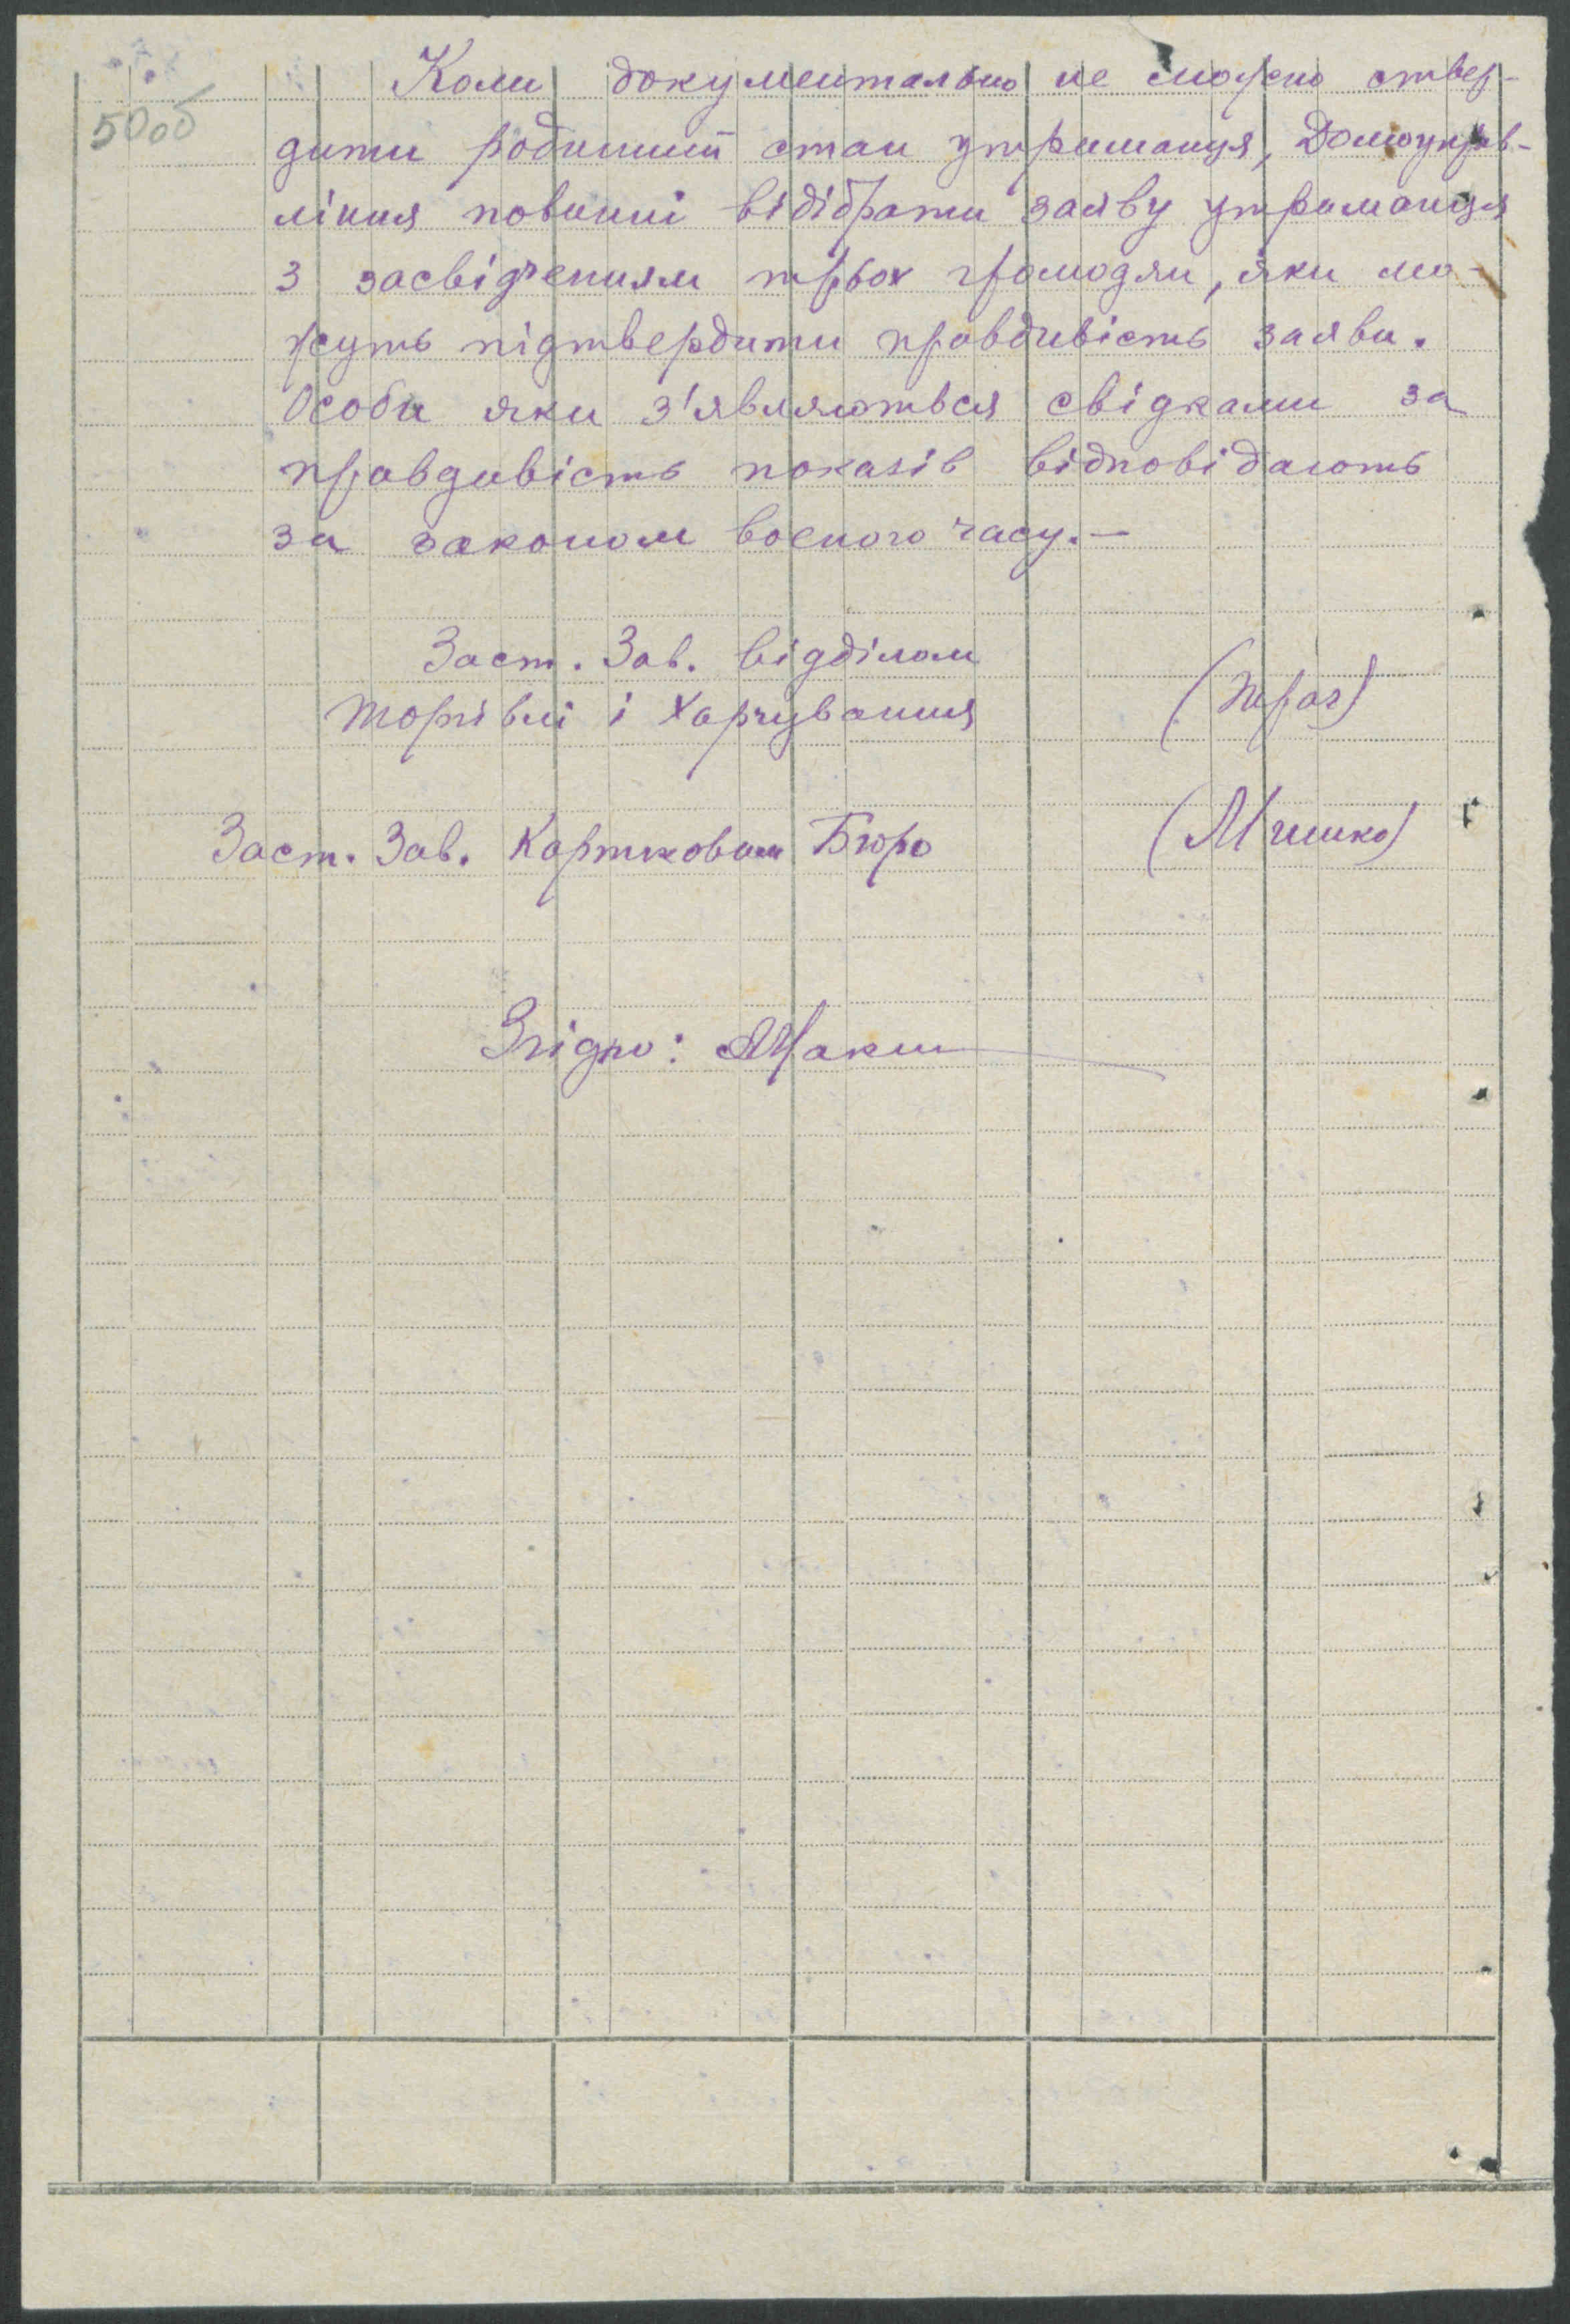 50об
Коли документально не можно ствер-
дити родинний стан утриманця, Домоуправ-
ління повинні відібрати заяву утриманця
з засвідченням трьох громодян, яки мо-
жуть підтвердити правдивість заяви.
Особи яки з'являються свідками за
правдивість показів відповідають
за законом военого часу.—
Заст. Зав. відділом
Торгівлі і Харчування
Заст. Зав. Картковим Бюро
Згідно: